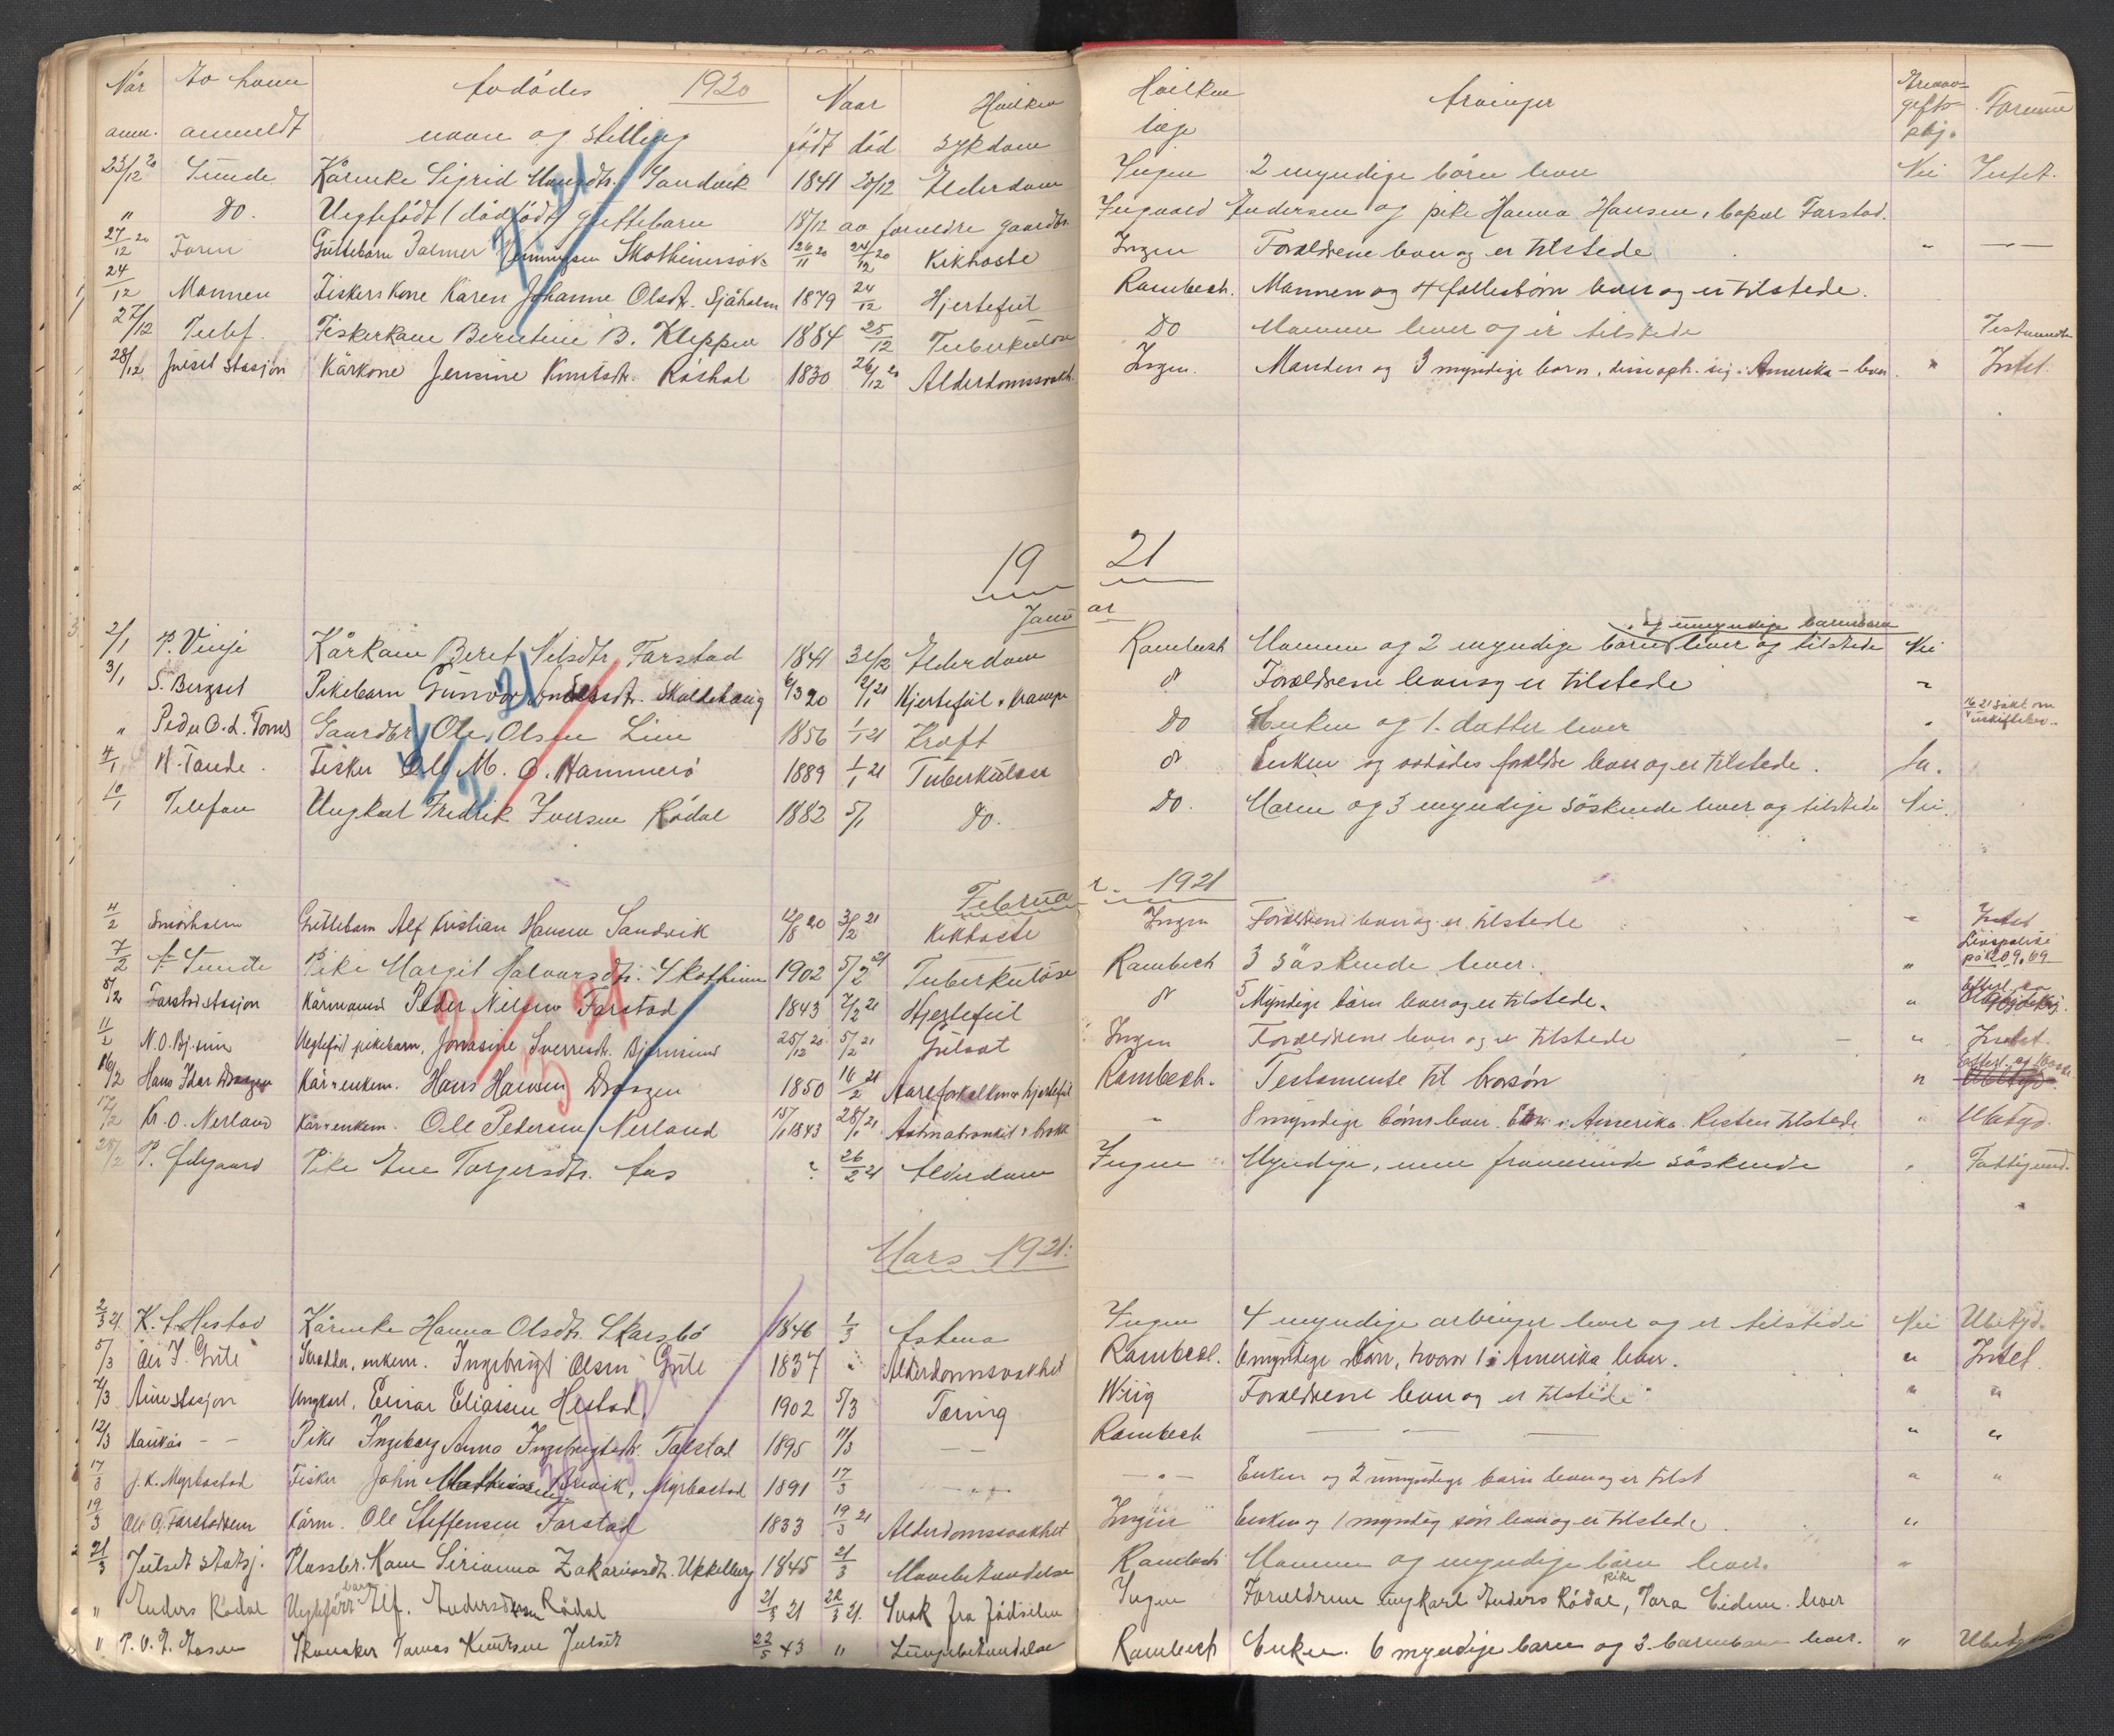 Når Av hvem Avdödes 1920 Naar Hvilken Hvilken Arvinger Arveav- Formue
anm. anmeldt navn og stilling födt död sygdom læge gifts- pkj.
23/12 20 Sunde Kårenke Sigrid Sandvik 1841 20/12 Alderdom Ingen 2 myndige börn lever Nei Intet.
" Do. Uegtefödt (dödfödt) guttebarn 18/12 av foreldre gaardbr. Ingvald Andersen og pike Hanna Hansen, Farstad.
27/12 20 Faren Guttebarn Palmer Henningsen 26/11 20 24/12 20 Kikhoste Ingen Forældrene lever og er tilstede "
24/12 Mannen Fiskers Kone Karen Johanne Olsdt. Sjöholm 1879 24/12 Hjertefeil Rambech. Mannen og 4 fællesbörn lever og er tilstede.
27/12 Telef. Fiskerkone Berntine B. Kleppen 1884 25/12 Tuberkulose Do Mannen lever og er tilstede
28/12 Julset Stasjon Kårkone Jensine Knutsdt. Röshol 1830 26/12 20 Alderdomssvakh. Ingen. Manden og 3 myndige barn, disse oph. sig i Amerika - lever. " Intet.
19 21
Janu ar
2/1 P. Vinje Kårkone Beret Nilsdtr Farstad 1841 31/12 Alderdom Rambech Mannen og 2 myndige börn og umyndige barnebarn lever og tilstede Nei
3/1 S. Bergset Pikebarn Gunvor 6/3 20 2/1 21 Hjertefeil + krampe Do Forældrene lever og er tilstede "
" Peder O. L. Gaardbr. Ole Olsen Lien 1856 1/1 21 Kræft Do Enken og 1 datter lever "
4/1 N. Tande. Fisker Ole M. O. Hammerö 1889 1/1 21 Tuberkulose Do Enken og avdödes forældre lever og er tilstede. Ja.
10/1 Telefon Ungkar Fredrik Iversen Rödal 1882 5/1 Do. Do. Moren og 3 myndige söskende lever og tilstede Nei.
Februa r. 1921
4/2 Smörholm Guttebarn Alf Kristian Hansen Sandvik 12/8 20 3/2 21 Kikhoste Ingen Forældrene lever og er tilstede " Intet
7/2 A. Sunde Pike Margit Halvorsdtr. Skotheim 1902 5/2 21 Tuberkulose Rambech 3 söskende lever. "
8/2 Farstad stasjon Kårmand Peder Nilsen Farstad 1843 7/2 21 Hjertefeil Do 5 Myndige börn lever og er tilstede. "
11/2 N. O. Uegtefödt pikebarn, Jonasine Sverresdt. 25/12 20 5/2 21 Gulsot Ingen Forældrene lever og er tilstede " Intet.
16/2 Hans Idar Dragen Kår + enkem. Hans Hansen Dragen 1850 14/2 21 Aareforkalkning hjertefeil Rambech. Testamente til brosön "
17/2 Kr. O. Nerland Kår + enkem. Ole Pedersen Nerland 15/1 1843 28/1 21 Rambech 8 myndige börn lever i Amerika. Resten tilstede " Ubetyd.
28/2 P. Pike Ane Torgersdtr. Aas ? 26/2 21 Alderdom Ingen Myndige, söskende " Fattigund.
Mars 1921:
2/3 21 K. A. Hestad Kårenke Hanna Olsdtr. Skarsbö 1846 1/3 Astma Ingen 4 myndige arvinger lever og er tilstede Nei Ubetyd.
5/3 Ole I. Gule Skredder, enkem. Ingebrigt Olsen Gule 1837 " Alderdomssvakhet Rambech. 6 myndige börn, hvorav 1 i Amerika lever. " Intet.
7/3 stasjon Ungkarl, Einar Eliassen Hestad. 1902 5/3 Tæring Wiig Forældrene lever og er tilstede " "
12/3 Pike Ingeborg Anna Ingebrigtsdt. 1895 11/3 Rambech " "
17/3 J. K. Myrbostad Fisker John Mathias Brevik, Myrbostad 1891 17/3 Enken og 2 umyndige barn lever og er tilst " "
19/3 Ole O. Farstad Kårm. Ole Steffensen Farstad 1833 19/3 21 Alderdomssvakhet Ingen Enken og 1 myndig sön lever og er tilstede "
21/3 Julset statsj. Plassbr. Kone Sirianna Zakariasdt. Ukkelberg 1845 21/3 Mavebetændelse Rambech Mannen og myndige börn lever. "
" Anders Rödal Uegtefödt barn Alf. Andersen Rödal 21/3 21 22/3 21. Svak fra födselen Ingen Foreldrene ungkarl Anders Rödal, pike Tora Eiden. lever
" P. O. Skomaker Tomas Knutsen Julset 22/5 43 " Lungebetændelse Rambech Enken. 6 myndige barn og 3 barnebarn lever. "